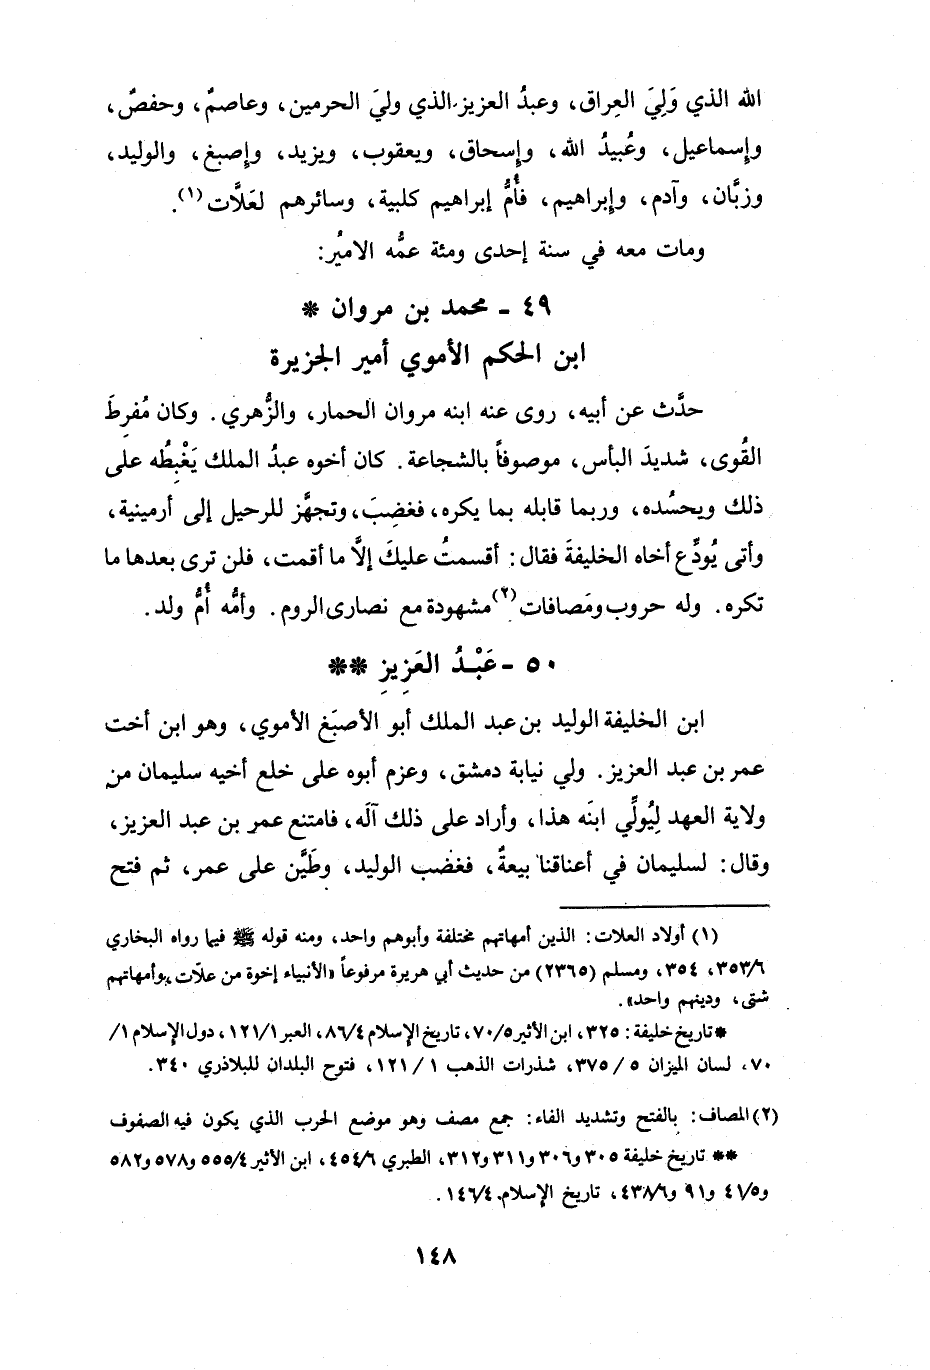 الله الذي وَلِيَ العِراق، وعبدُ العزيز الذي وليَ الحرمين، وعاصمٌ، وحفصٌ،
وإسماعيل، وعُبيدُ الله، وإسحاق، ويعقوب، ويزيد، وإصبغ، والوليد،
وزبَّان، وآدم، وإبراهيم، فأُمُّ إبراهيم كلبية، وسائرهم لعَلاَّت(١).
ومات معه في سنة إحدى ومئة عمُّه الاميُر:
٤٩ ـ محمد بن مروان *
ابن الحكم الأموي أمير الجزيرة
حدَّث عن أبيه، روى عنه ابنه مروان الحمار، والزُّهري. وكان مُفرِطَ
القُوى، شديدَ البأس، موصوفاً بالشجاعة. كان أخوه عبدُ الملك يَغْبِطُه على
ذلك ويحسُده، وربما قابله بما يكره، فغضِبَ، وتجهَّز للرحيل إلى أرمينية،
وأتى يُودِّع أخاه الخليفةَ فقال: أقسمتُ عليكَ إلاَّ ما أقمت، فلن ترى بعدها ما
تكره. وله حروب ومَصافات(٢) مشهودة مع نصارى الروم. وأمُّه أُمُّ ولد.
٥٠ ـ عَبْدُ العَزِيزِ **
ابن الخليفة الوليد بن عبد الملك أبو الأصبَغ الأموي، وهو ابن أخت
عمر بن عبد العزيز. ولي نيابة دمشق، وعزم أبوه على خلع أخيه سليمان من
ولاية العهد لِيُولِّي ابنَه هذا، وأراد على ذلك آلَه، فامتنع عمر بن عبد العزيز،
وقال: لسليمان في أعناقنا بيعةٌ، فغضب الوليد، وطَيَّن على عمر، ثم فتح
(١) أولاد العلات: الذين أمهاتهم مختلفة وأبوهم واحد، ومنه قوله ﷺ فيما رواه البخاري
٣٥٣/٦، ٣٥٤، ومسلم (٢٣٦٥) من حديث أبي هريرة مرفوعاً «الأنبياء إخوة من علاّت، وأمهاتهم
شتى، ودينهم واحد».
* تاريخ خليفة: ٣٢٥، ابن الأثير ٧٠/٥، تاريخ الإسلام ٨٦/٤، العبر ١٢١/١، دول الإسلام ١/
٧٠، لسان الميزان ٥ / ٣٧٥، شذرات الذهب ١ / ١٢١، فتوح البلدان للبلاذري ٣٤٠.
(٢) المصاف: بالفتح وتشديد الفاء: جمع مصف وهو موضع الحرب الذي يكون فيه الصفوف
** تاريخ خليفة ٣٠٥ و٣٠٦ و٣١١ و٣١٢، الطبري ٤٥٤/٦، ابن الأثير ٥٥٥/٤ و٥٧٨ و٥٨٢
و٤١/٥ و٩١ و٤٣٨/٦، تاريخ الإسلام ١٤٦/٤.
١٤٨